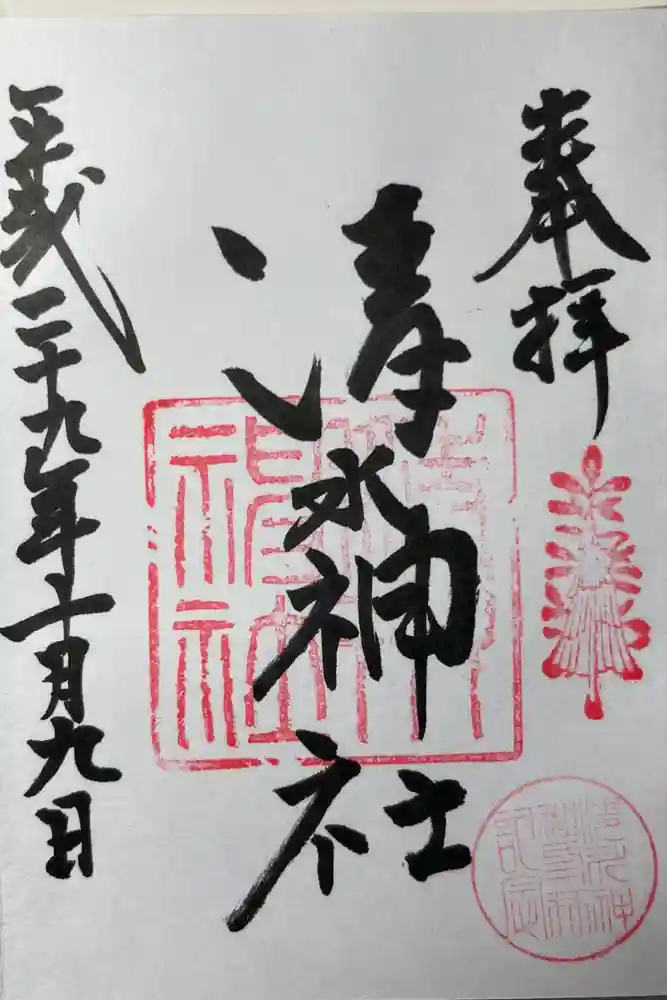 奉拝
清水神社
平成二十九年十月九日